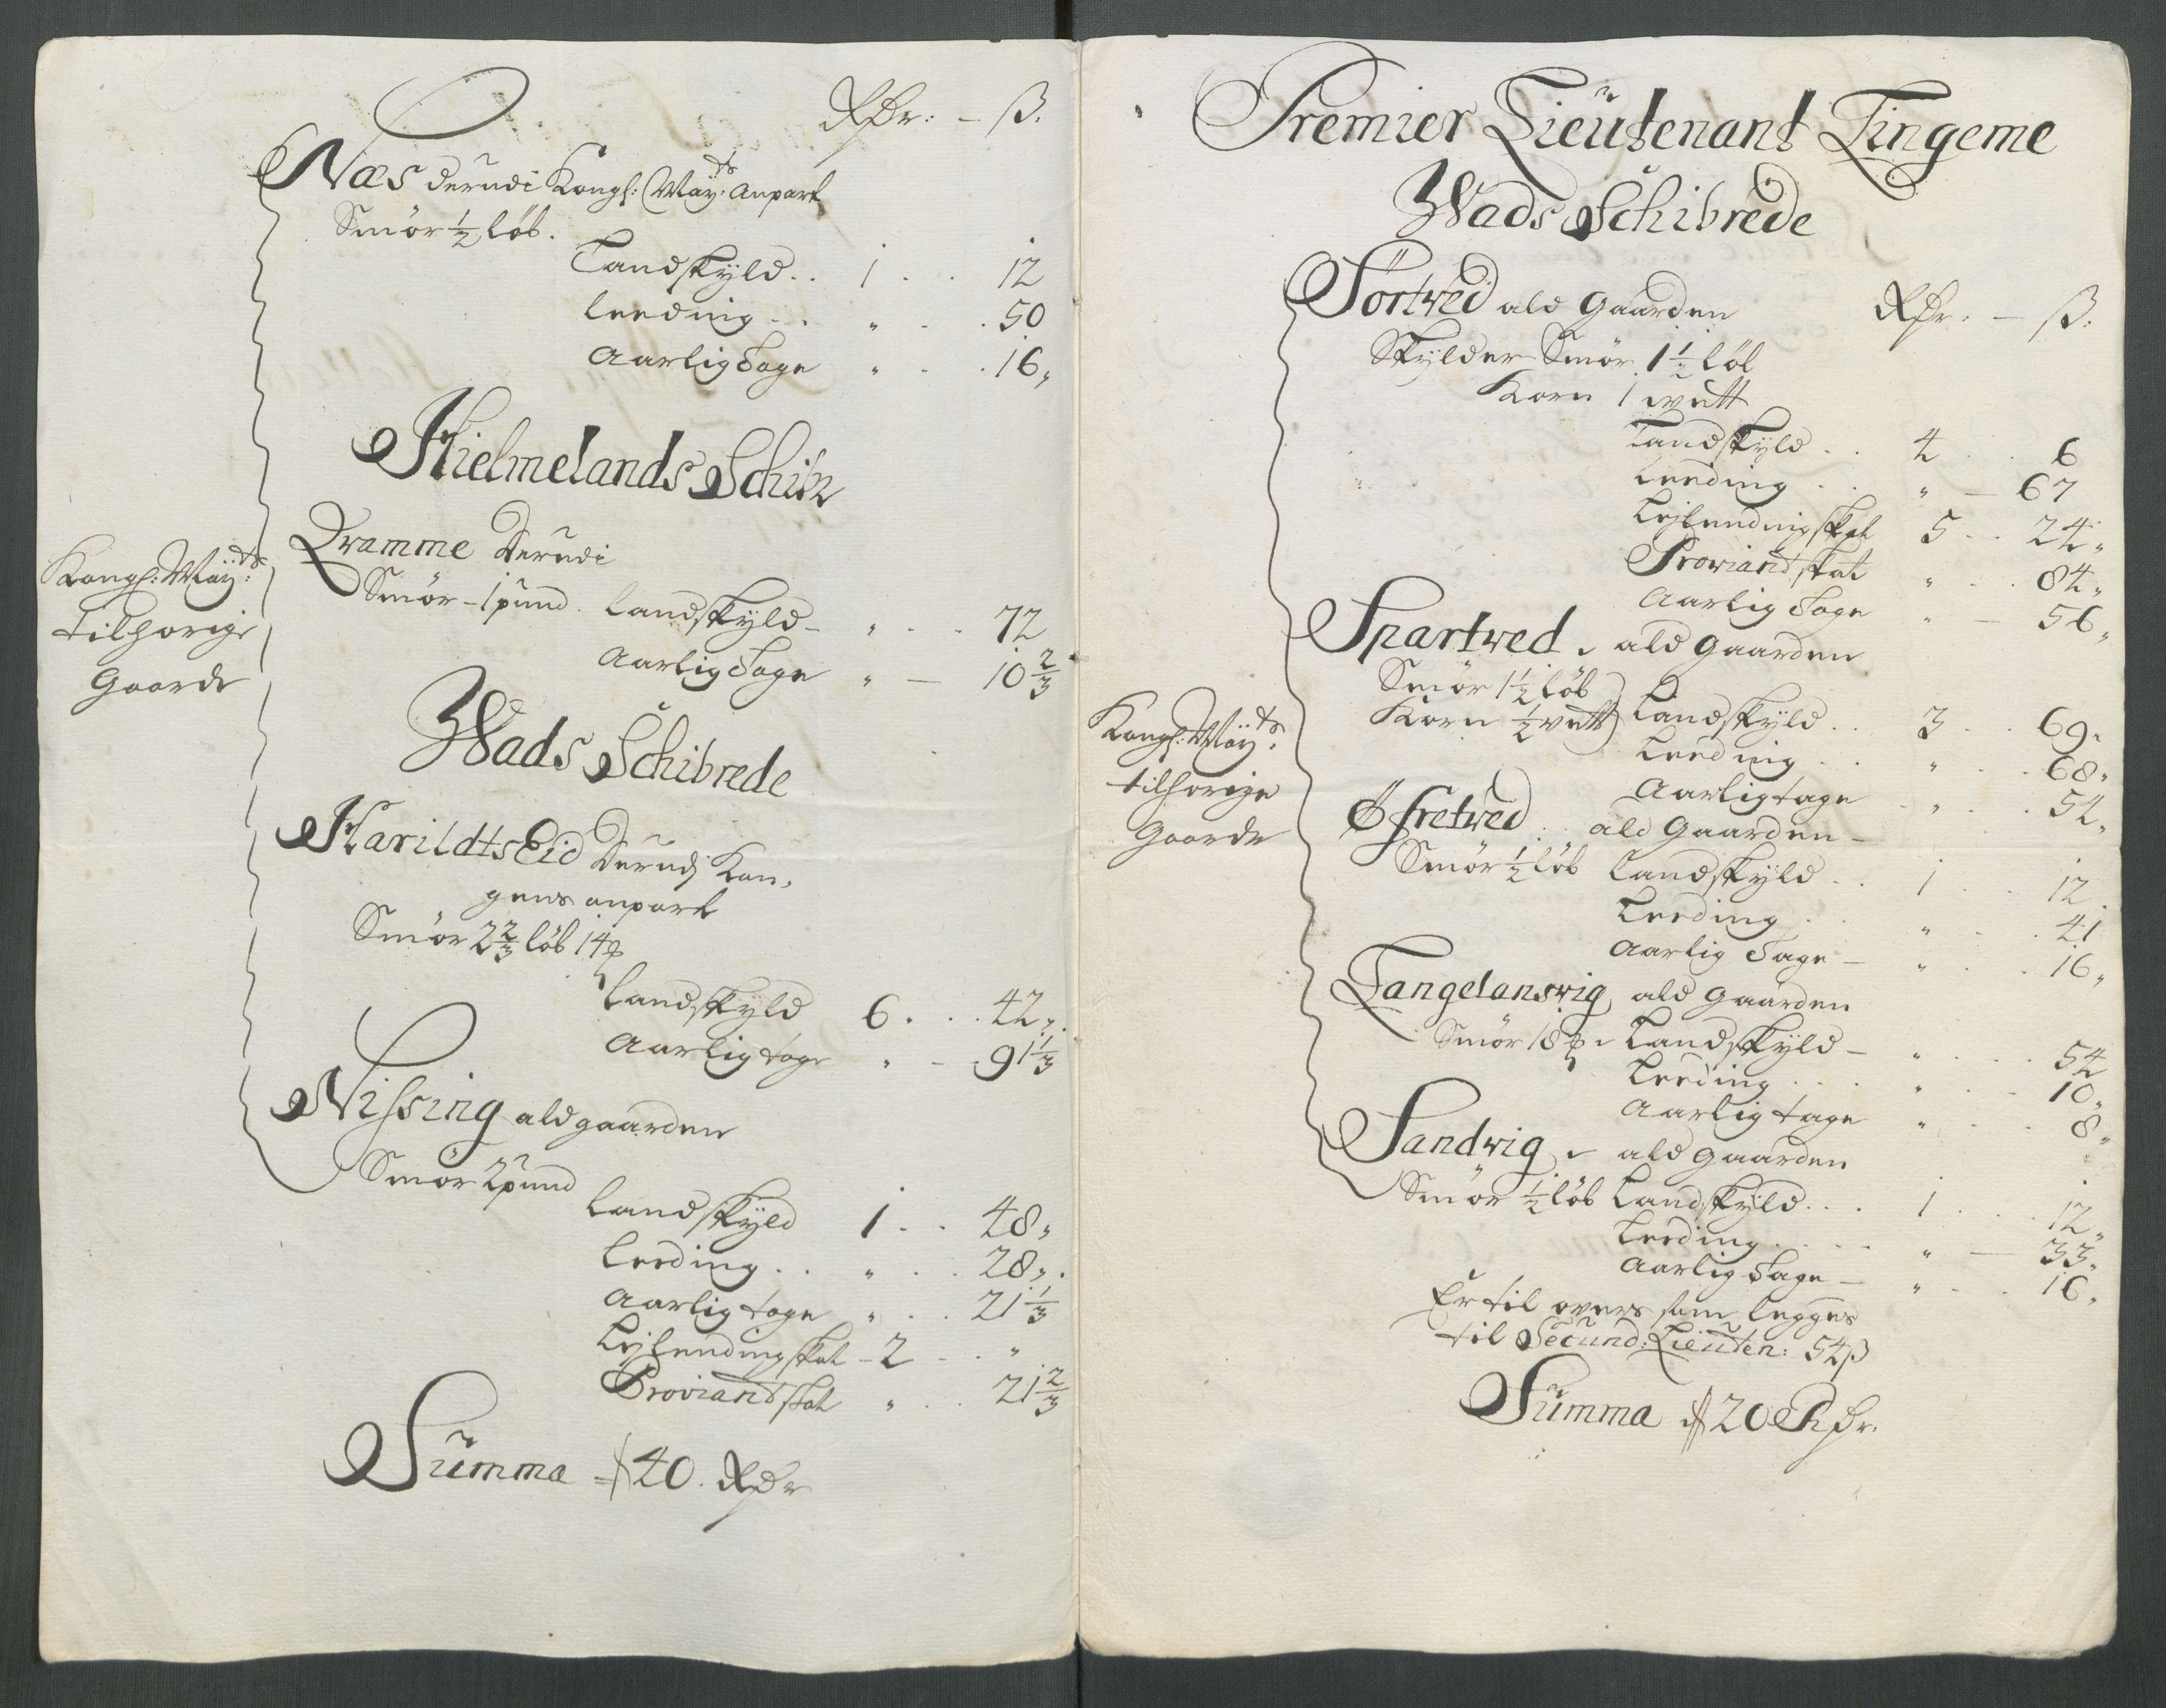 Rdr: – ß.
Næs derudi Kongl: May:ts Anpart
Smör ½ löb.
Landskyld.. 1 .. 12
Leeding .. " .. 50
Aarlig Tage " .. 16"
Hielmelands Schibr
Dramme Derudi
Smör – 1 pund. Landskyld – " .. 72
Aarlig Tage " – 10 2/3
Kongl: May:ts
tilhörige
Gaarde
Wads Schibrede
Harildts Eid Derudj Kon,
gens anpart
Smör 2 2/3 löb 14 ℔
Landskyld 6 .. 42"
Aarlig tage " – 91 1/3
Nissing ald gaarden
Smör 2 pund
Landskyld 1 .. 48"
Leeding .. " .. 28"
Aarlig tage " .. 21 1/3
Lejlendingskat – 2 .. "
Proviandskat " .. 21 2/3
Summa 40. Rdr
Premier Lieutenant Tingeme
Wads Schibrede
Sörtwed ald Gaarden Rdr. – ß.
Skylder Smör 1 ½ löb
Korn 1 wett
Landskyld .. 4 .. 6
Leeding .. " – 67
Lejlendingskat 5 .. 24"
Proviandskat " .. 84"
Aarlig Tage " – 56"
Spartwed, ald Gaarden
Smör 1 ½ löb
Korn ½ wett) Landskyld .. 3 .. 69"
Leeding .. " .. 68"
Aarlig tage " .. 54"
Kongl: May:ts
tilhörige
Gaarde
Öfretwed .. ald Gaarden –
Smör ½ löb Landskyld .. 1 .. 12.
Leeding .. " .. 41
Aarlig Tage – " .. 16"
Tangelanswig ald Gaarden
Smör 18 ℔ Landskyld – " .. 54
Leeding .. " .. 10"
Aarlig tage " .. 8"
Sandwig, ald Gaarden
Smör ½ löb Landskyld .. 1 .. 12"
Leeding .. " – 33"
Aarlig Tage – " .. 16"
Er til overs som legges
til Secund: Lieuten: 54 ß
Summa 20 Rdr.